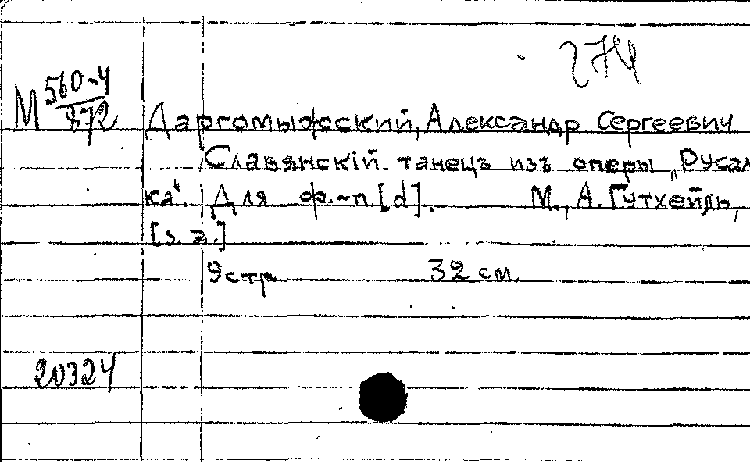 274
М 560-4
872
Даргомыжский, Александр Сергеевич
Славянскій танецъ изъ оперы „Русал
ка“. Для ф.-п. [d]. М., А. Гутхейль,
[s. a.]
9 стр 32 см.
20324